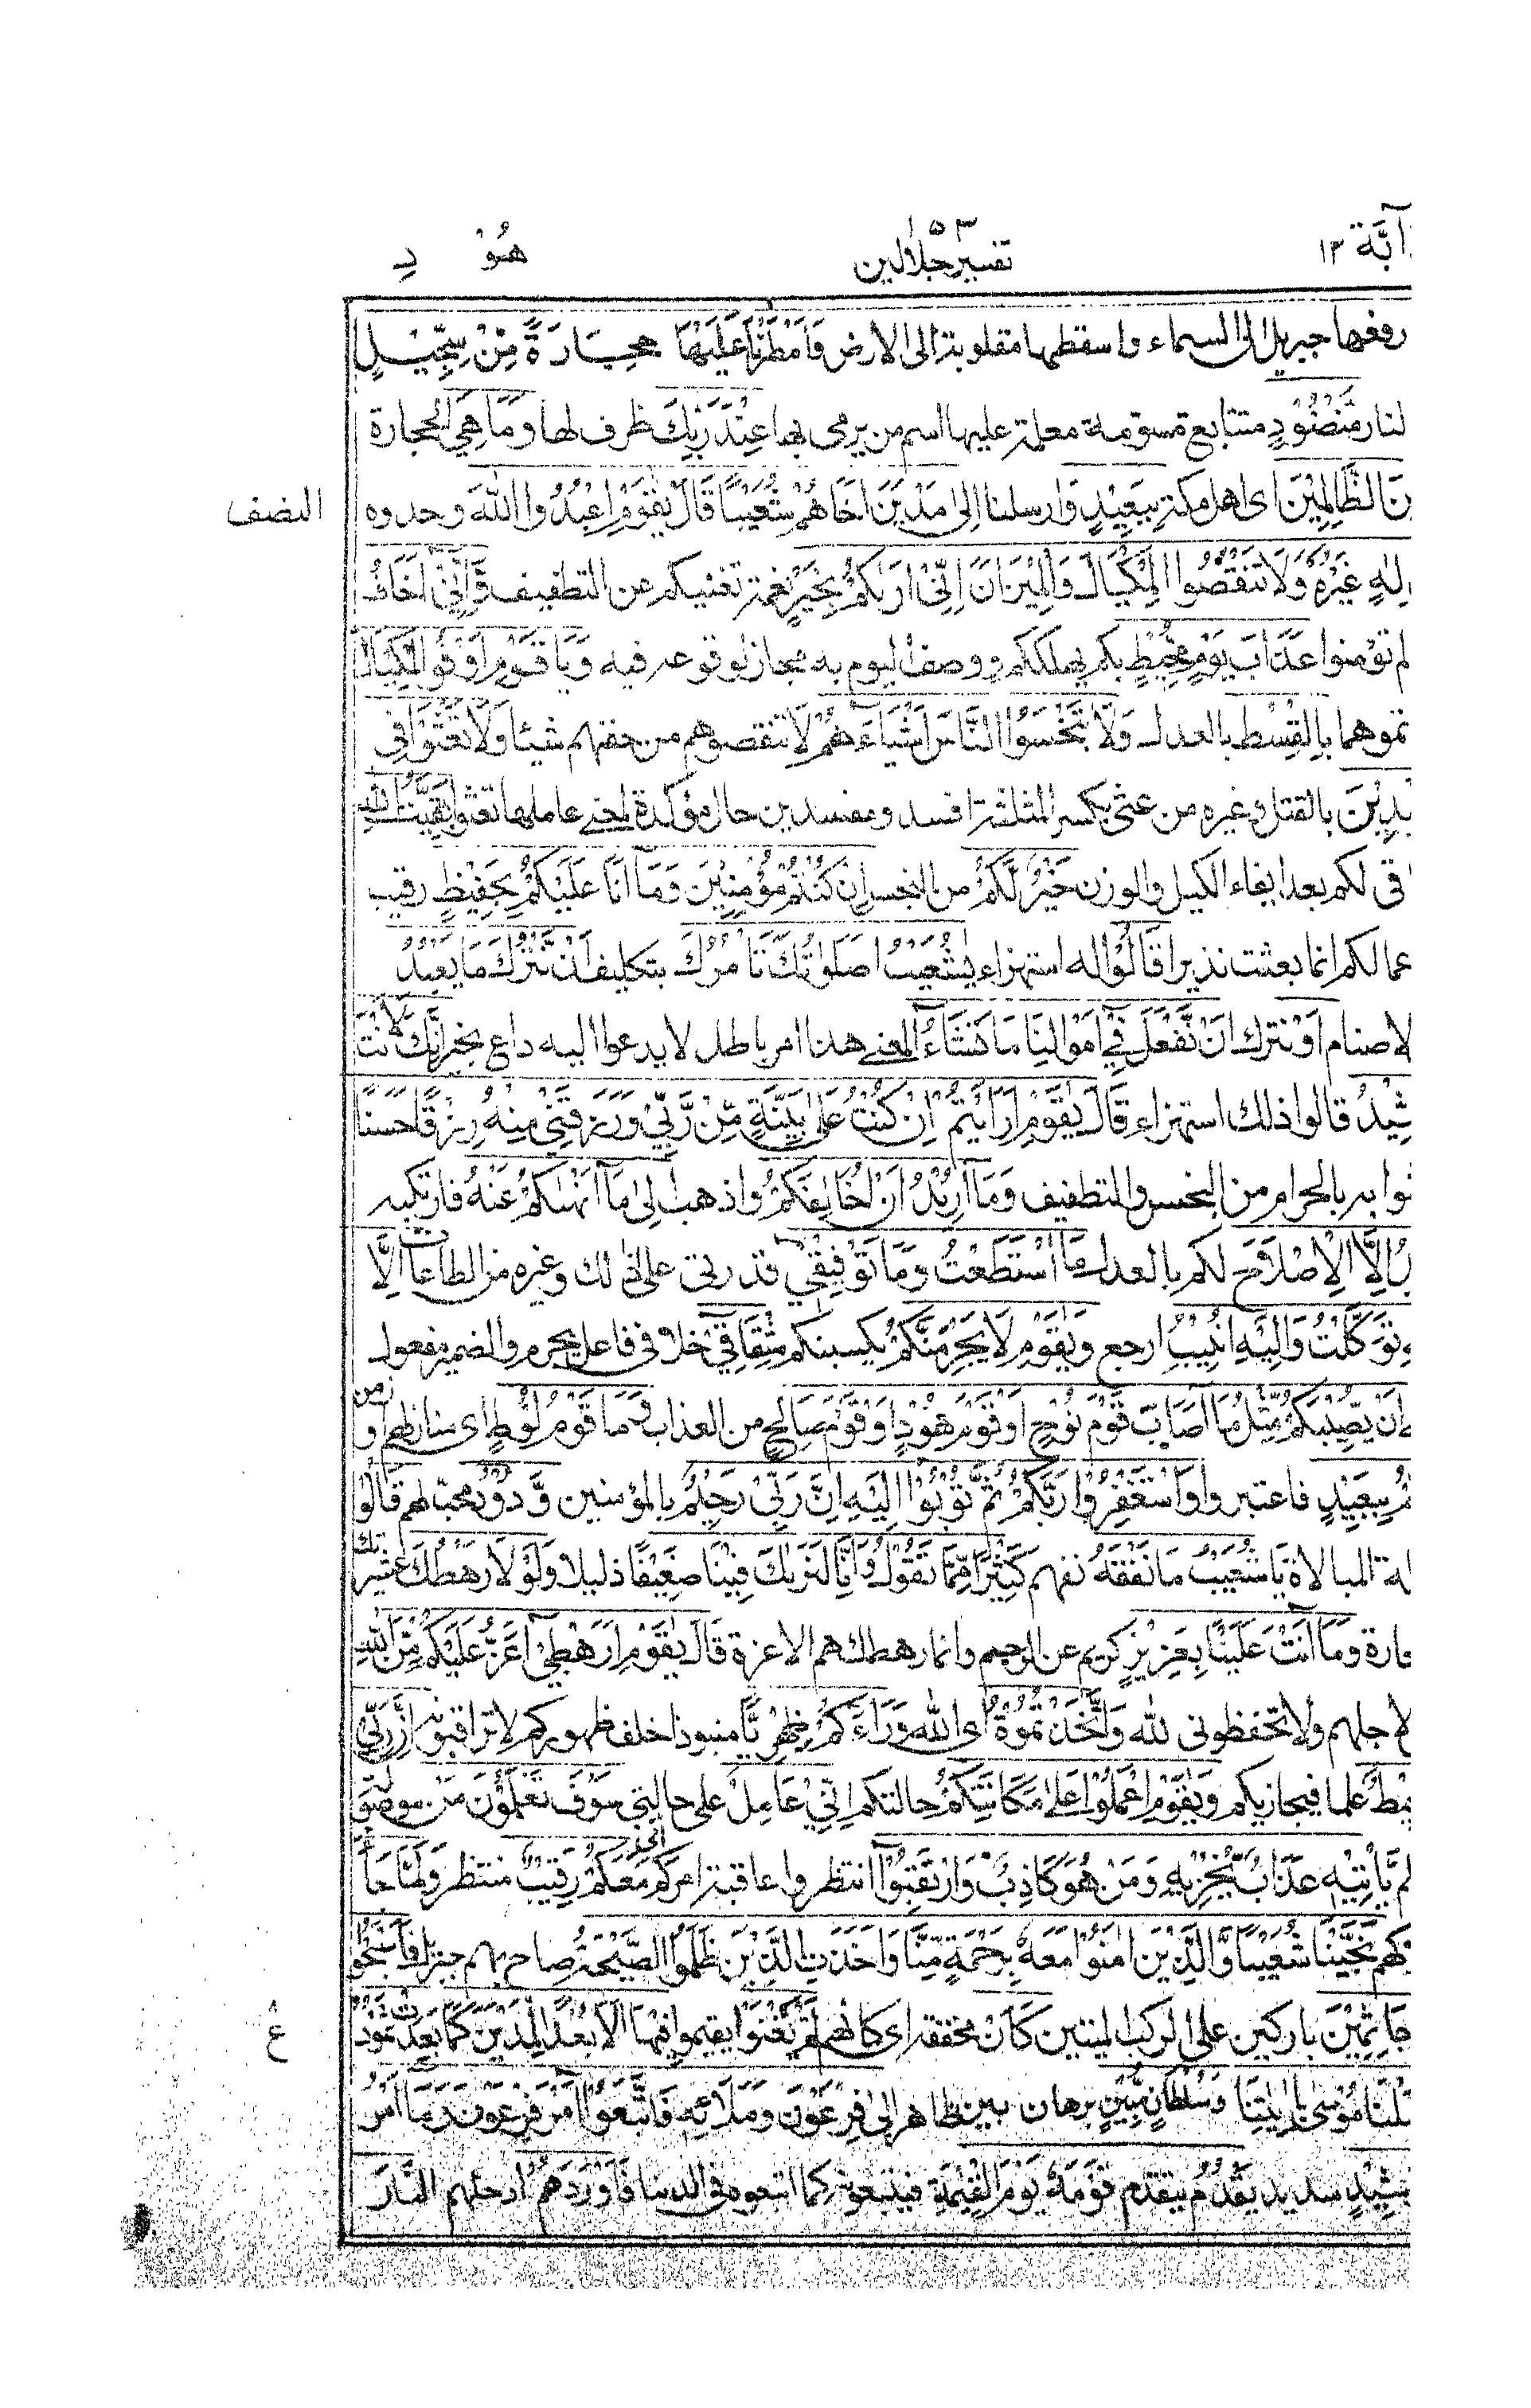 دآبّة ١٢
١٥٣
تفسير جلالين
هُوْدِ
رفعها جبريل الى السماء واسقطها مقلوبة الى الارض وَاَمْطَرْنَا عَلَيْهَا حِجَارَةً مِّنْ سِجِّيْلٍ
لنار مَنْضُوْدٍ متتابع مسومة معلمة عليها اسم من يرمى بها عِنْدَ رَبِّكَ ظرف لها وَمَا هِيَ الحجارة
نَ الظّٰلِمِيْنَ اى اهل مكة بِبَعِيْدٍ وَ ارسلنا اِلٰى مَدْيَنَ اَخَاهُمْ شُعَيْبًا قَالَ يٰقَوْمِ اعْبُدُوا اللهَ وحدوه
النصف
اِلٰهٍ غَيْرُهٗ وَلَا تَنْقُصُوا الْمِكْيَالَ وَالْمِيْزَانَ اِنِّيْ اَرٰىكُمْ بِخَيْرٍ نعمة تغنيكم عن التطفيف وَّاِنِّيْ اَخَافُ
لم تؤمنوا عَذَابَ يَوْمٍ مُّحِيْطٍ بكم يهلككم ووصف اليوم به مجاز لوقوعه فيه وَيَا قَوْمِ اَوْفُوا الْمِكْيَالَ
تموهما بِالْقِسْطِ بالعدل وَلَا تَبْخَسُوا النَّاسَ اَشْيَآءَهُمْ لا تنقصوهم من حقهم شيئا وَلَا تَعْثَوْا فِى
سِدِيْنَ بالقتل وغيره من عثى بكسر المثلثة افسد ومفسدين حال مؤكدة لمعنے عاملها تعثوا بَقِيَّتُ اللهِ
اقى لكم بعد ايفاء الكيل والوزن خَيْرٌ لَّكُمْ من البخس اِنْ كُنْتُمْ مُّؤْمِنِيْنَ وَمَآ اَنَا عَلَيْكُمْ بِحَفِيْظٍ رقيب
عمالكم انما بعثت نذيرا قَالُوْا له استهزاء يٰشُعَيْبُ اَصَلٰوتُكَ تَاْمُرُكَ بتكليف اَنْ نَّتْرُكَ مَا يَعْبُدُ
لاصنام اَوْ نترك اَنْ نَّفْعَلَ فِيْٓ اَمْوَالِنَا مَا نَشٰٓؤُ المعنے هذا امر باطل لا يدعوا اليه داع بخير اِنَّكَ لَاَنْتَ
شِيْدُ قالوا ذلك استهزاء قَالَ يٰقَوْمِ اَرَءَيْتُمْ اِنْ كُنْتُ عَلٰى بَيِّنَةٍ مِّنْ رَّبِّيْ وَرَزَقَنِيْ مِنْهُ رِزْقًا حَسَنًا
وبه بالحرام من البخس والتطفيف وَمَآ اُرِيْدُ اَنْ اُخَالِفَكُمْ واذهب اِلٰى مَآ اَنْهٰىكُمْ عَنْهُ فارتكبه
دُ اِلَّا الْاِصْلَاحَ لكم بالعدل مَا اسْتَطَعْتُ وَمَا تَوْفِيْقِيْٓ قدرتى على ذلك وغيره من الطاعات اِلَّا
هِ تَوَكَّلْتُ وَاِلَيْهِ اُنِيْبُ ارجع وَيٰقَوْمِ لَا يَجْرِمَنَّكُمْ يكسبنكم شِقَاقِيْٓ خلافى فاعل يجرم والضمير مفعول
نے اَنْ يُّصِيْبَكُمْ مِّثْلُ مَآ اَصَابَ قَوْمَ نُوْحٍ اَوْ قَوْمَ هُوْدٍ اَوْ قَوْمَ صٰلِحٍ من العذاب وَمَا قَوْمُ لُوْطٍ اى منازلهم او زمن
مْ بِبَعِيْدٍ فاعتبروا وَاسْتَغْفِرُوْا رَبَّكُمْ ثُمَّ تُوْبُوْٓا اِلَيْهِ اِنَّ رَبِّيْ رَحِيْمٌ بالمؤمنين وَّدُوْدٌ محب لهم قَالُوْا
لة المبالاة يَا شُعَيْبُ مَا نَفْقَهُ نفهم كَثِيْرًا مِّمَّا تَقُوْلُ وَاِنَّا لَنَرٰىكَ فِيْنَا ضَعِيْفًا ذليلا وَلَوْلَا رَهْطُكَ عشيرتك
جارة وَمَآ اَنْتَ عَلَيْنَا بِعَزِيْزٍ كريم عن الرجم وانما رهطك هم الاعزة قَالَ يٰقَوْمِ اَرَهْطِيْٓ اَعَزُّ عَلَيْكُمْ مِّنَ اللهِ
لاجلهم ولا تحفظونى لله وَاتَّخَذْتُمُوْهُ اى الله وَرَآءَكُمْ ظِهْرِيًّا منبوذا خلف ظهوركم لا تراقبونه اِنَّ رَبِّيْ
يْطٌ علما فيجازيكم وَيٰقَوْمِ اعْمَلُوْا عَلٰى مَكَانَتِكُمْ حالتكم اِنِّيْ عَامِلٌ على حالتى سَوْفَ تَعْلَمُوْنَ مَنْ موصولة
لم يَّاْتِيْهِ عَذَابٌ يُّخْزِيْهِ وَمَنْ هُوَ كَاذِبٌ وَارْتَقِبُوْٓا انتظروا عاقبة امركم اِنِّيْ مَعَكُمْ رَقِيْبٌ منتظر وَلَمَّا جَآءَ
كهم نَجَّيْنَا شُعَيْبًا وَّالَّذِيْنَ اٰمَنُوْا مَعَهٗ بِرَحْمَةٍ مِّنَّا وَاَخَذَتِ الَّذِيْنَ ظَلَمُوا الصَّيْحَةُ صاح بهم جبريل فَاَصْبَحُوْا
جَاثِمِيْنَ باركين على الركب ميتين كَاَنْ مخففة اى كانهم لَّمْ يَغْنَوْا يقيموا فِيْهَا اَلَا بُعْدًا لِّمَدْيَنَ كَمَا بَعِدَتْ ثَمُوْدُ
٨
ع
سَلْنَا مُوْسٰى بِاٰيٰتِنَا وَسُلْطَانٍ مُّبِيْنٍ برهان بين ظاهر اِلٰى فِرْعَوْنَ وَمَلَا۟ئِهٖ فَاتَّبَعُوْٓا اَمْرَ فِرْعَوْنَ وَمَآ اَمْرُ
شِيْدٍ سديد يَقْدُمُ يتقدم قَوْمَهٗ يَوْمَ الْقِيٰمَةِ فيتبعونه كما اتبعوه فى الدنيا فَاَوْرَدَهُمُ ادخلهم النَّارَ